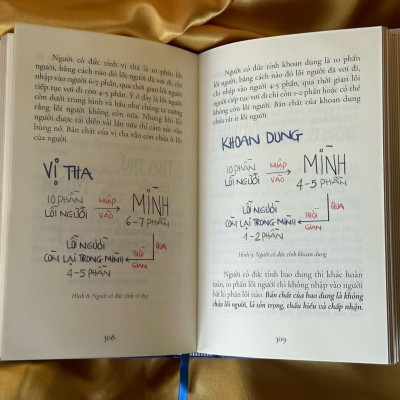 Người có đức tính vị tha là 10 phần lỗi
người, bằng cách nào đó lỗi người đã vơi đi, chỉ
nhập vào người 6-7 phần, qua thời gian lỗi người
tiếp tục vơi đi còn 4-5 phần. Ý ở đây là lỗi người
còn dưới trung bình và hầu như chúng ta tưởng
rằng lỗi người không còn nữa. Nhưng khi lỗi
người được tái diễn vài lần nữa thì cảm xúc vẫn
bùng nổ. Bản chất của vị tha vẫn còn chứa ít lỗi
của người.
VỊ THA
10 PHẦN NHẬP MÌNH
LỖI NGƯỜI VÀO 6-7 PHẦN
LỖI NGƯỜI QUA
CÒN LẠI TRONG MÌNH THỜI
4-5 PHẦN GIAN
Hình 8: Người có đức tính vị tha
308
Người có đức tính khoan dung là 10 phần
lỗi người, bằng cách nào đó lỗi người đã vơi đi,
chỉ nhập vào người 4-5 phần, qua thời gian lỗi
người tiếp tục vơi đi chỉ còn 1-2 phần hoặc có thể
không còn lỗi người. Bản chất của khoan dung
chứa rất ít lỗi người.
KHOAN DUNG
10 PHẦN NHẬP MÌNH
LỖI NGƯỜI VÀO 4-5 PHẦN
LỖI NGƯỜI QUA
CÒN LẠI TRONG MÌNH THỜI
1-2 PHẦN GIAN
Hình 9: Người có đức tính khoan dung
Người có đức tính bao dung thì khác hoàn
toàn, 10 phần lỗi người thì không nhập vào người
bất kì phần lỗi nào. Bản chất của bao dung là không
chứa lỗi người, là tôn trọng, thấu hiểu và chấp nhận.
309